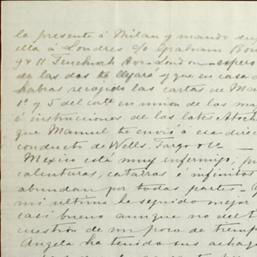 la presente á Milan y mando dup
ella á Londres c/o Graham Row
9 y 11 Fenchurch Bev London espero
de las dos te llegará y que en caso de
habras recogido las cartas de Man
1º y 5 del corte en union de las mas
é instrucciones de los lotes
que Manuel te envió á esa direc
conducto de Wells. Fargo &Cº
Mexico está muy enfermizo, pu
calenturas, catarros é infinitos
abundan por todas partes
mi ultima he seguido mejor
casi bueno aunque no del t
cuestion de un poco de tiemp
Angela ha tenido sus achaq